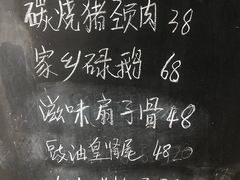 碳烧猪颈肉 38
家乡碌鹅 68
滋味扇子骨 48
豉油皇肾尾 48